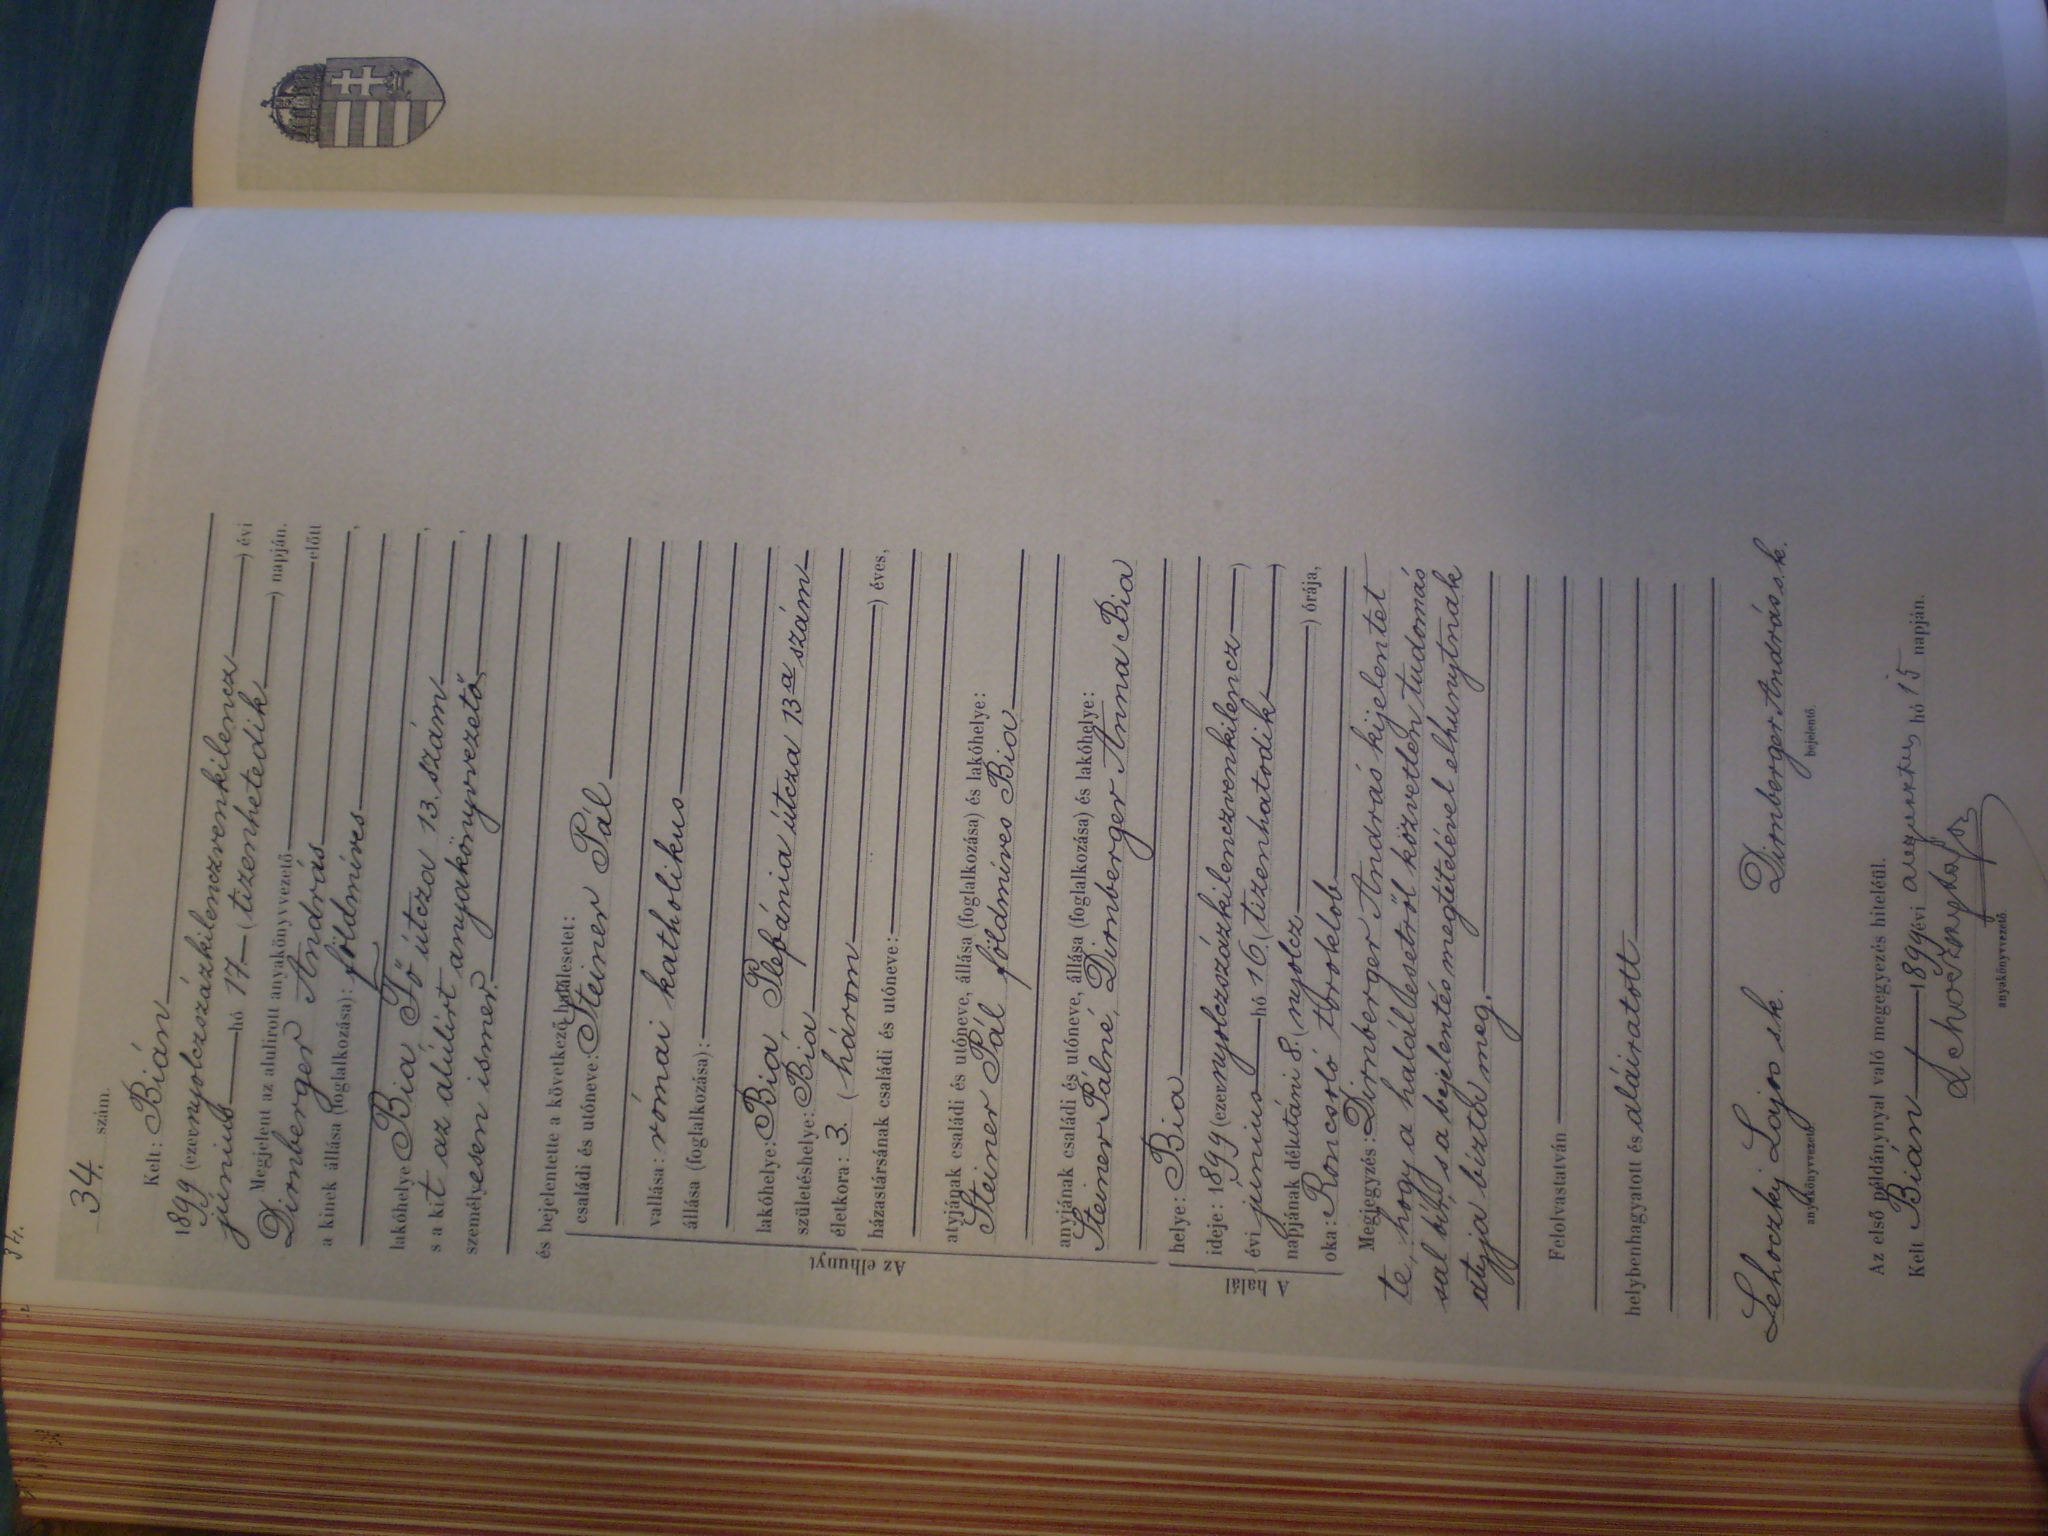 34. szám.
Kelt: Bián
1899 (ezernyolczszázkilenczvenkilencz) évi
június hó 17 (tizenhetedik) napján.
Megjelent az alulirott anyakönyvvezető előtt
Dirnberger András
a kinek állása (foglalkozása): földmíves,
lakóhelye Bia, Fő útcza 13. szám,
s a kit az alúlírt anyakönyvvezető,
személyesen ismer.
és bejelentette a következő halálesetet:
Az elhunyt
családi és utóneve: Steiner Pál
vallása: római katholikus
állása (foglalkozása):
lakóhelye: Bia, Stefánia útcza 13 a szám
születéshelye: Bia
életkora: 3. (három) éves,
házastársának családi és utóneve:
atyjának családi és utóneve, állása (foglalkozása) és lakóhelye:
Steiner Pál földmíves Bia
anyjának családi és utóneve, állása (foglalkozása) és lakóhelye:
Steiner Pálné, Dirnberger Anna Bia
A halál
helye: Bia
ideje: 1899 (ezernyolczszázkilenczvenkilencz)
évi június hó 16 (tizenhatodik)
napjának délutáni 8. (nyolcz) órája,
oka: Roncsoló toroklob
Megjegyzés: Dirnberger András kijelentet
te, hogy a halálesetről közvetlen tudomás
sal bír, s a bejelentés megtételével elhunytnak
atyja bízta meg.
Felolvastatván
helybenhagyatott és aláíratott
Lehoczky Lajos sk. Dirnberger András s.k.
anyakönyvvezető. bejelentő.
Az első példánynyal való megegyezés hiteléül.
Kelt Bián 1899 évi augusztus hó 15 napján.
Lehoczky Lajos
anyakönyvvezető.